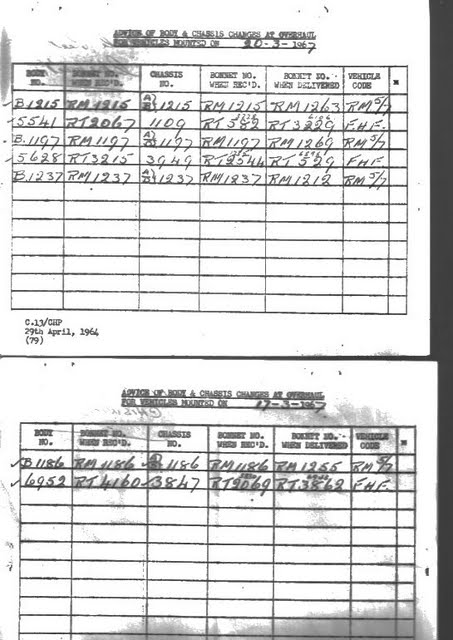 ADVICE OF BODY & CHASSIS CHANGES AT OVERHAUL
FOR VEHICLES MOUNTED ON 20-3-1967
BODY NO. BONNET NO. WHEN REC'D. CHASSIS NO. BONNET NO. WHEN REC'D. BONNET NO. WHEN DELIVERED VEHICLE CODE
B.1215 RM1215 A) B) 1215 RM1215 RM1263 RM 5/7
5541 RT2067 1109 RT582 RT3229 F.H.F.
B.1197 RM1197 A) B) 1197 RM1197 RM1269 RM 5/7
5628 RT3215 3949 RT2544 RT529 FHF
B.1237 RM1237 A) B) 1237 RM1237 RM1212 RM 5/7
C.13/CHP
29th April, 1964
(79)
ADVICE OF BODY & CHASSIS CHANGES AT OVERHAUL
FOR VEHICLES MOUNTED ON 17-3-1967
BODY NO. BONNET NO. WHEN REC'D. CHASSIS NO. BONNET NO. WHEN REC'D. BONNET NO. WHEN DELIVERED VEHICLE CODE
B.1186 RM1186 A) B) 1186 RM1186 RM1255 RM 5/7
6952 RT4160 3847 RT2069 RT3862 F.H.F.